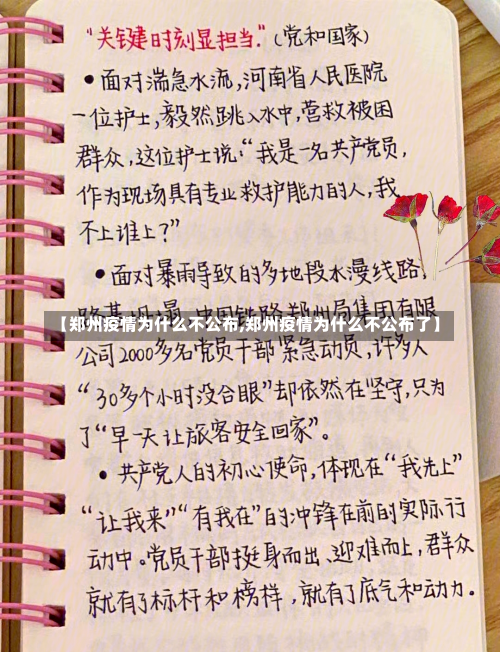 "关键时刻显担当."(党和国家)
• 面对湍急水流,河南省人民医院
一位护士,毅然跳入水中,营救被困
群众,这位护士说:"我是一名共产党员,
作为现场具有专业救护能力的人,我
不上谁上?"
• 面对暴雨导致的多地段水漫线路,
路基坍塌,中国铁路郑州局集团有限
【郑州疫情为什么不公布,郑州疫情为什么不公布了】
公司2000多名党员干部紧急动员,许多人
"30多个小时没合眼"却依然在坚守,只为
了"早一天让旅客安全回家"。
• 共产党人的初心使命,体现在"我先上"
"让我来""有我在"的冲锋在前的实际行
动中。党员干部挺身而出,迎难而上,群众
就有了标杆和榜样,就有了底气和动力.